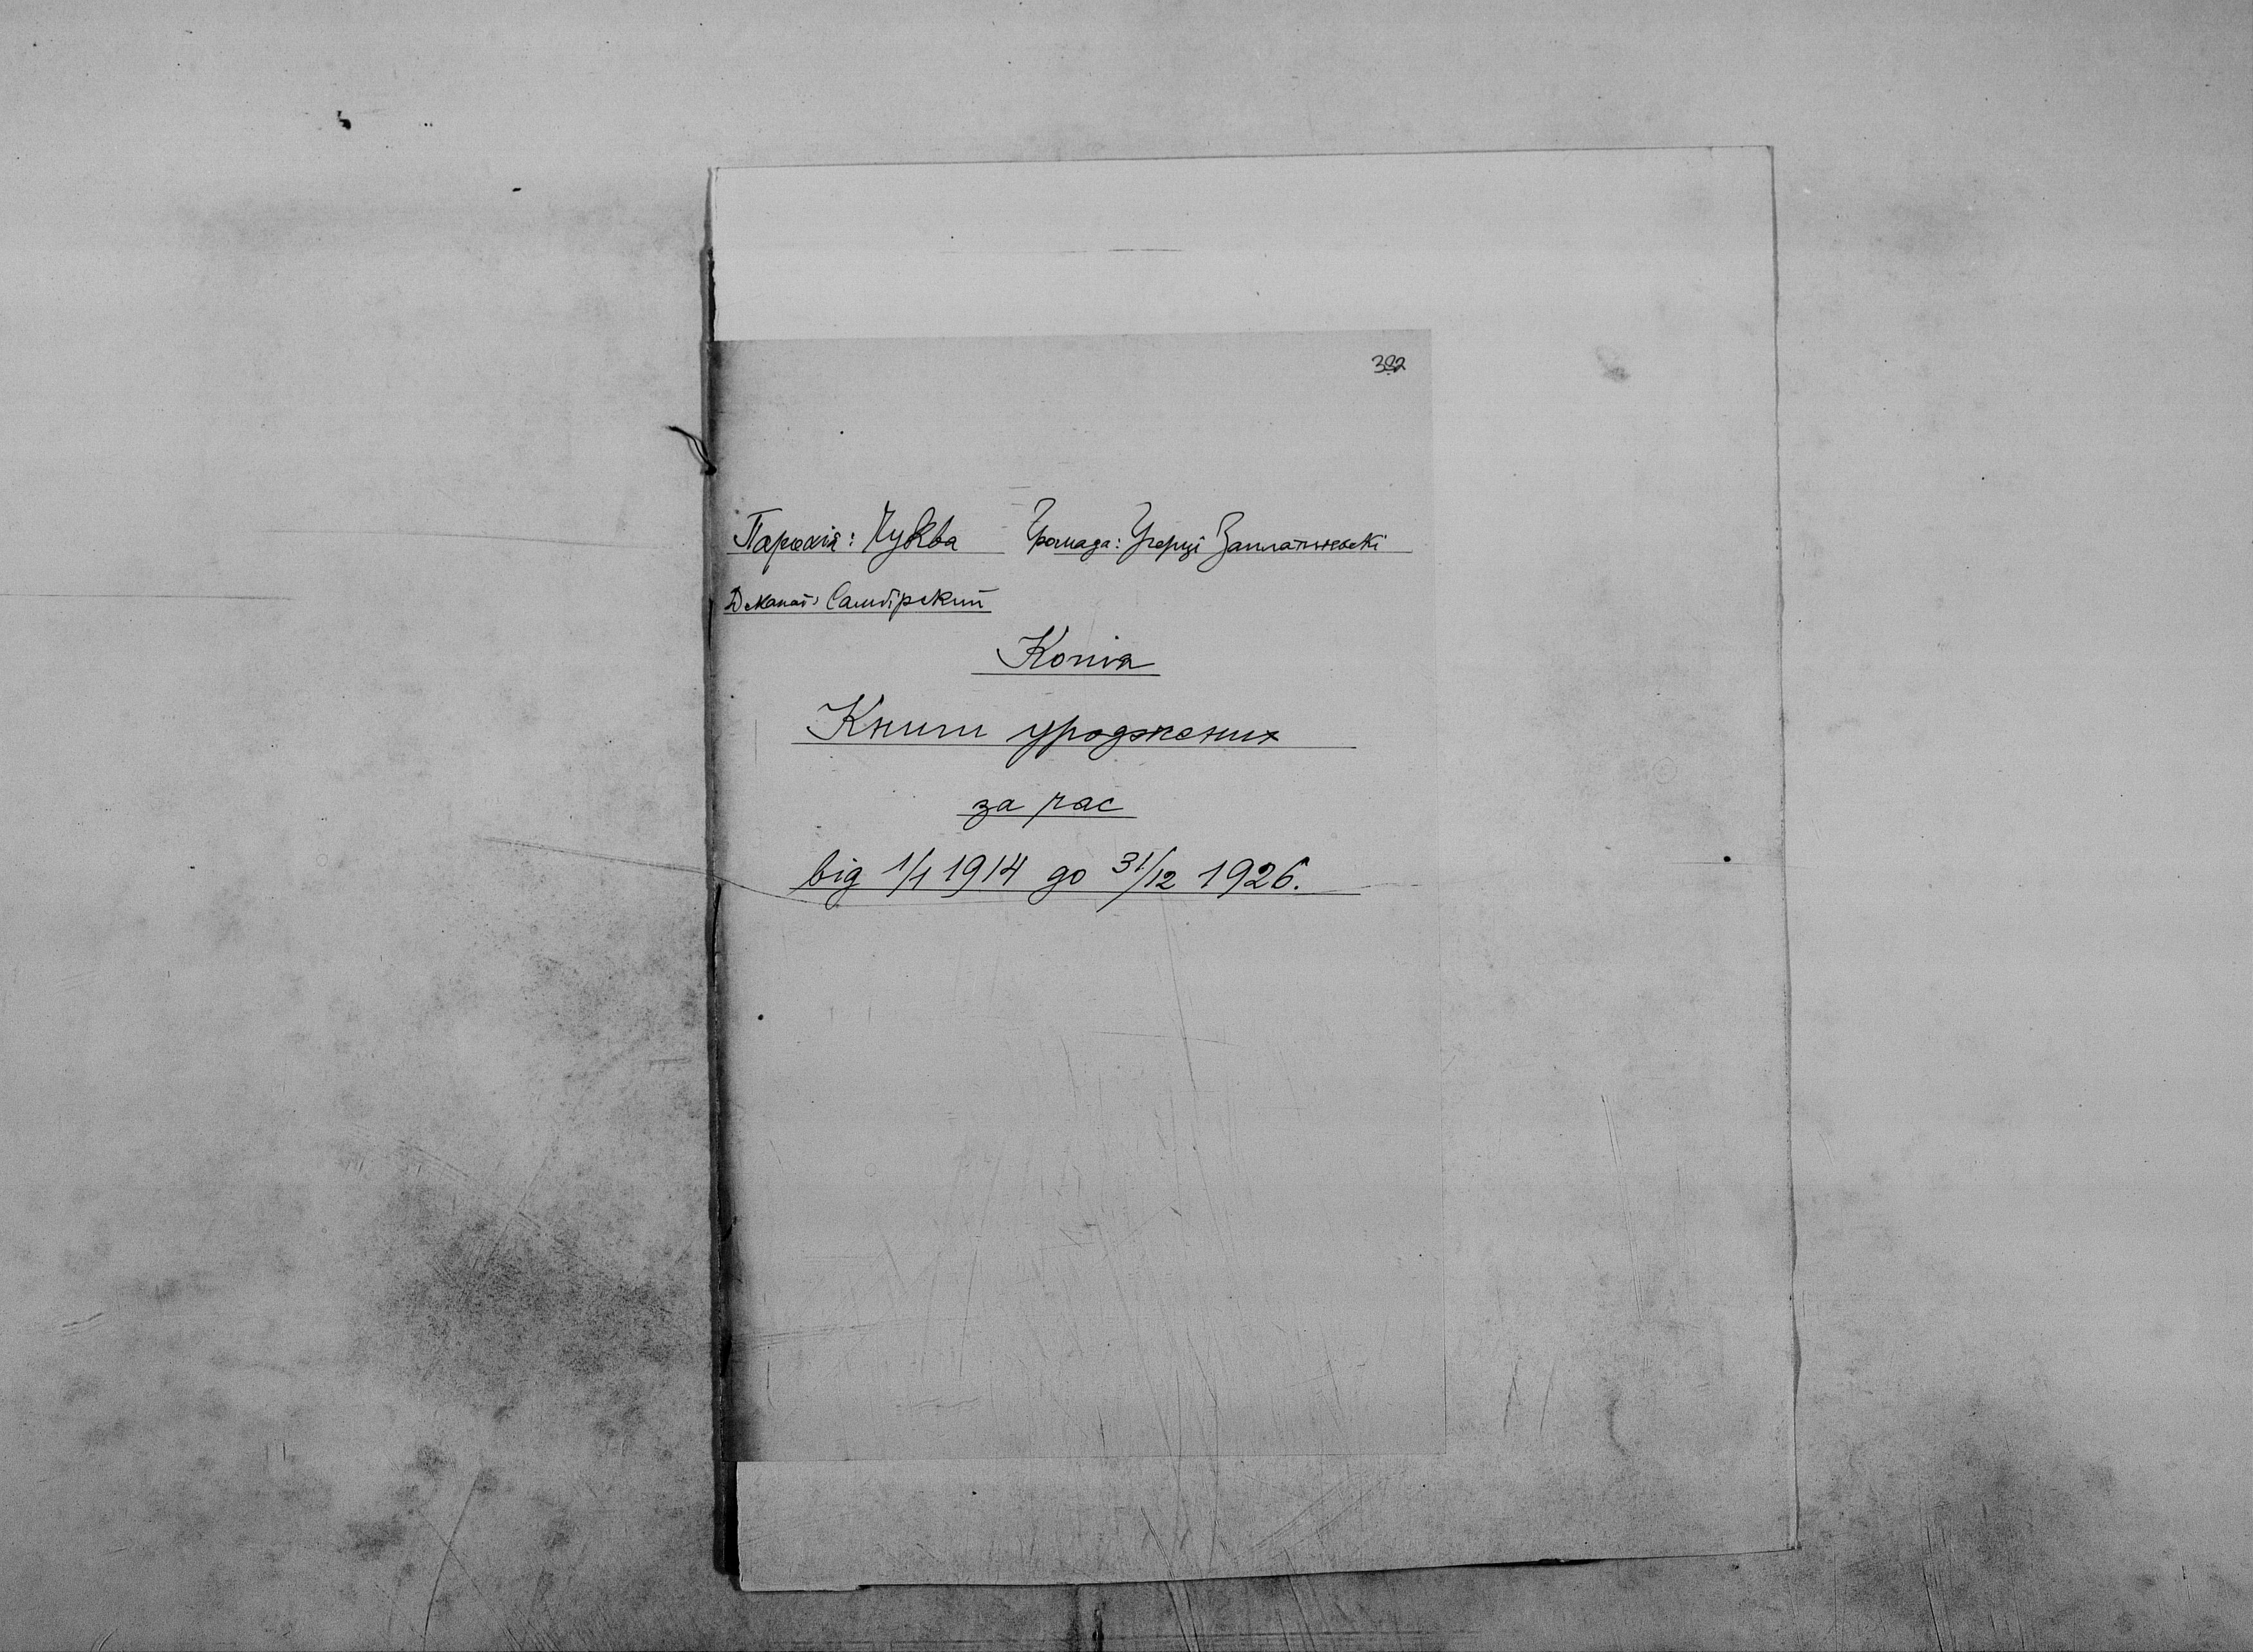 382
Парохія: Чуква Громада: Угерці Заплатинські
Деканат: Самбірский
Копія
Книги уроджених
за час
від 1/1 1914 до 31/12 1926.